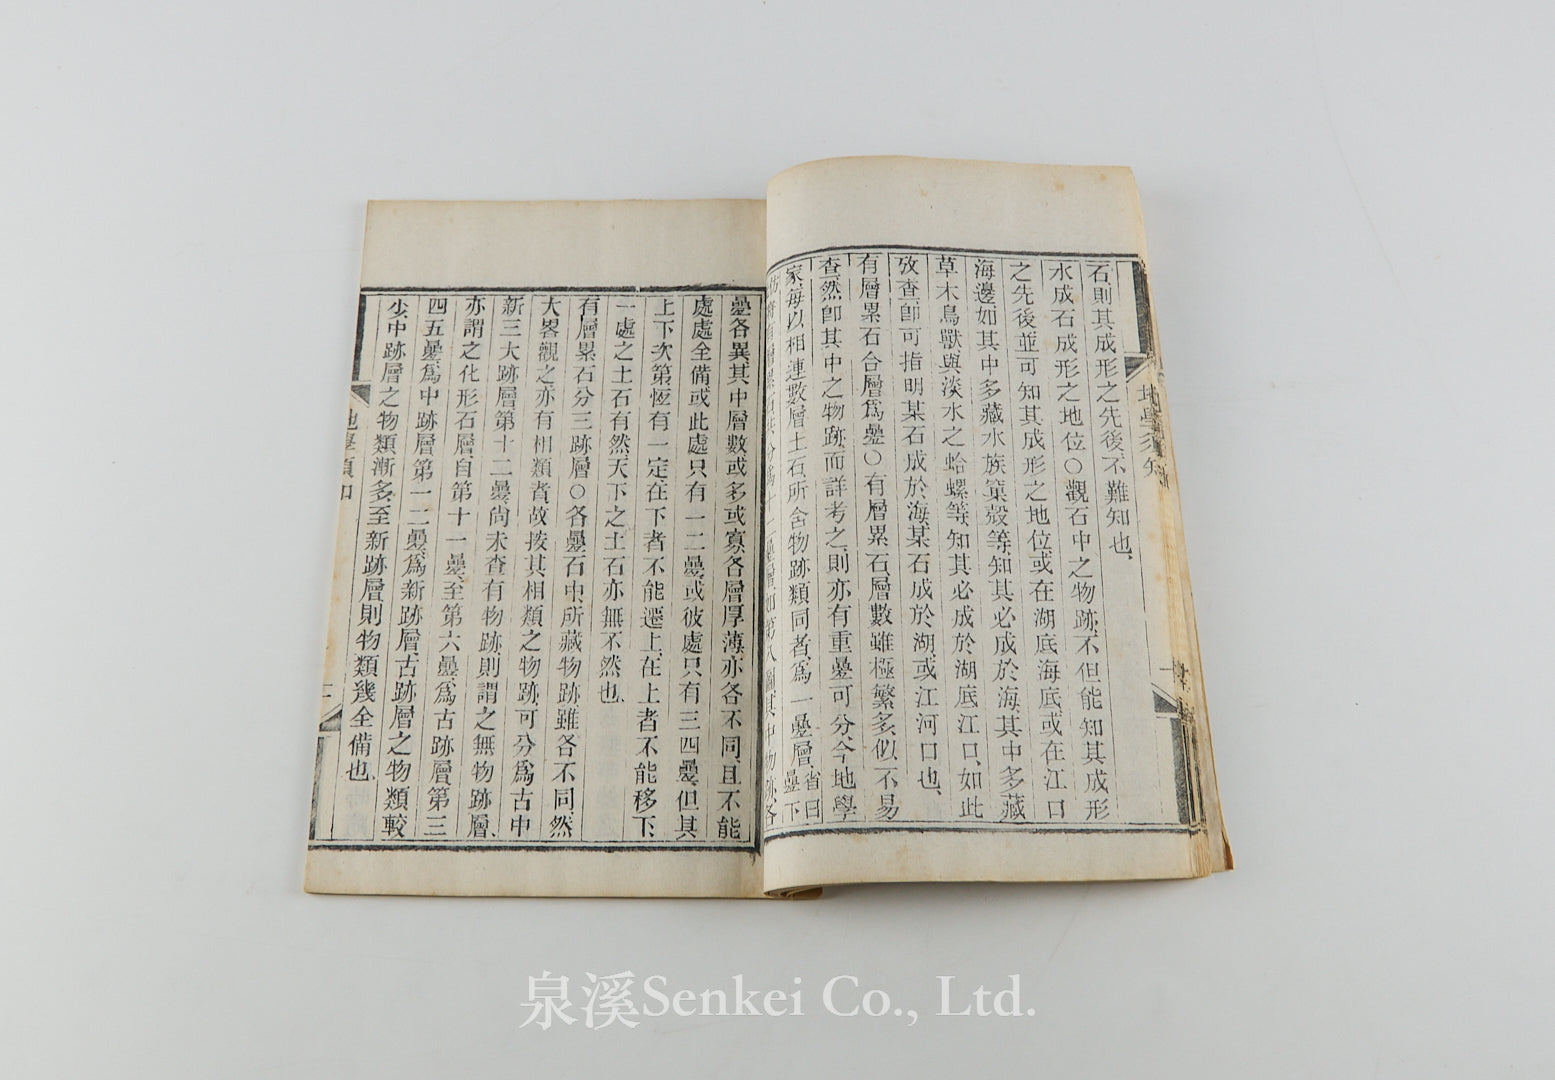 石則其成形之先後不難知也、
水成石成形之地位○觀石中之物跡、不但能知其成形
之先後、並可知其成形之地位、或在湖底海底、或在江口
海邊、如其中多藏水族
殼等、知其必成於海、其中多藏
草木鳥獸與淡水之蛤螺等、知其必成於湖底江口、如此
攷查、卽可指明某石成於海、某石成於湖、或江河口也、
有層累石合層爲疊○有層累石層數雖極繁多、似不易
查、然卽其中之物跡、而詳考之、則亦有重疊可分、今地學
家每以相連數層土石所含物跡類同者、爲一疊層、省曰疊下
疊各異、其中層數或多或寡、各層厚薄、亦各不同、且不能
處處全備、或此處只有一二疊、或彼處只有三四疊、但其
上下次第、恆有一定、在下者不能遷上、在上者不能移下、
一處之土石有然、天下之土石亦無不然也、
有層累石分三跡層○各疊石中、所藏物跡、雖各不同、然
大畧觀之、亦有相類者、故按其相類之物跡、可分爲古中
新三大跡層、第十二疊、尚未查有物跡、則謂之無物跡層、
亦謂之化形石層、自第十一疊、至第六疊、爲古跡層、第三
四五疊、爲中跡層、第一二疊、爲新跡層、古跡層之物類較
少、中跡層之物類漸多、至新跡層、則物類幾全備也、
地學須知
泉溪Senkei Co., Ltd.